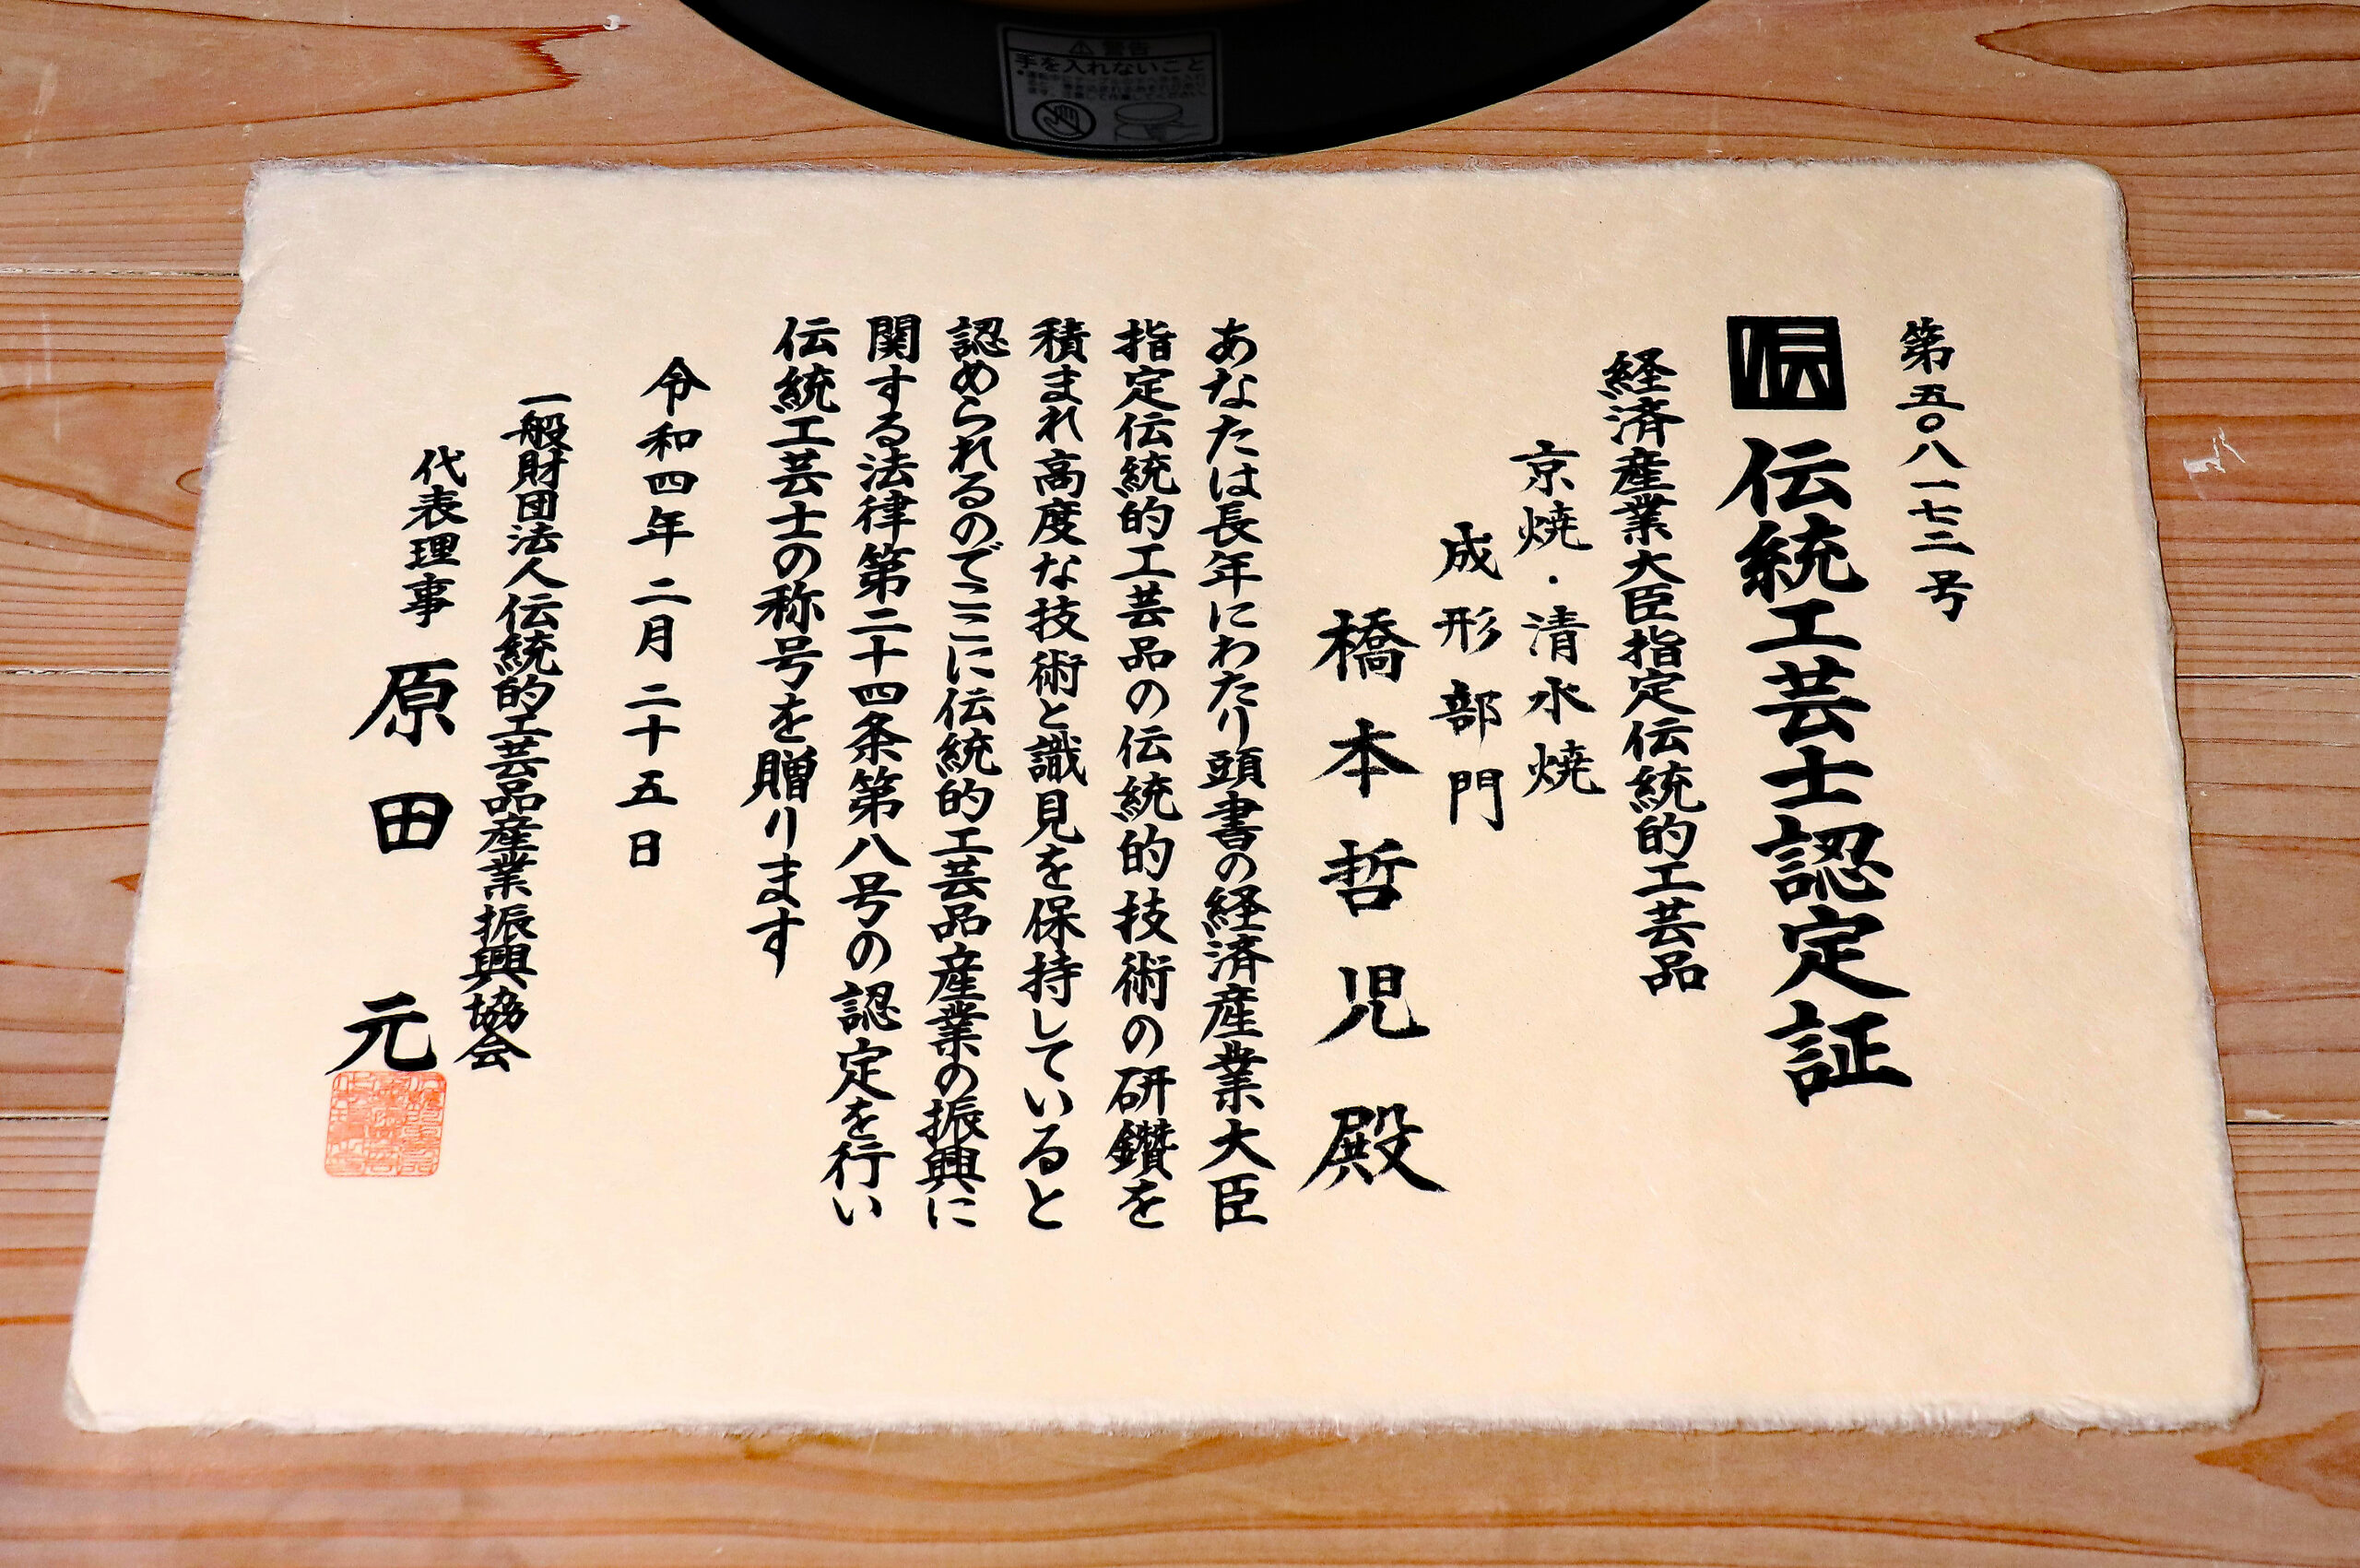 警告
手を入れないこと
第五〇八一七二号
伝
伝統工芸士認定証
経済産業大臣指定伝統的工芸品
京焼・清水焼
成形部門
橋本哲児殿
あなたは長年にわたり頭書の経済産業大臣
指定伝統的工芸品の伝統的技術の研鑽を
積まれ高度な技術と識見を保持していると
認められるのでここに伝統的工芸品産業の振興に
関する法律第二十四条第八号の認定を行い
伝統工芸士の称号を贈ります
令和四年二月二十五日
一般財団法人伝統的工芸品産業振興協会
代表理事 原田 元